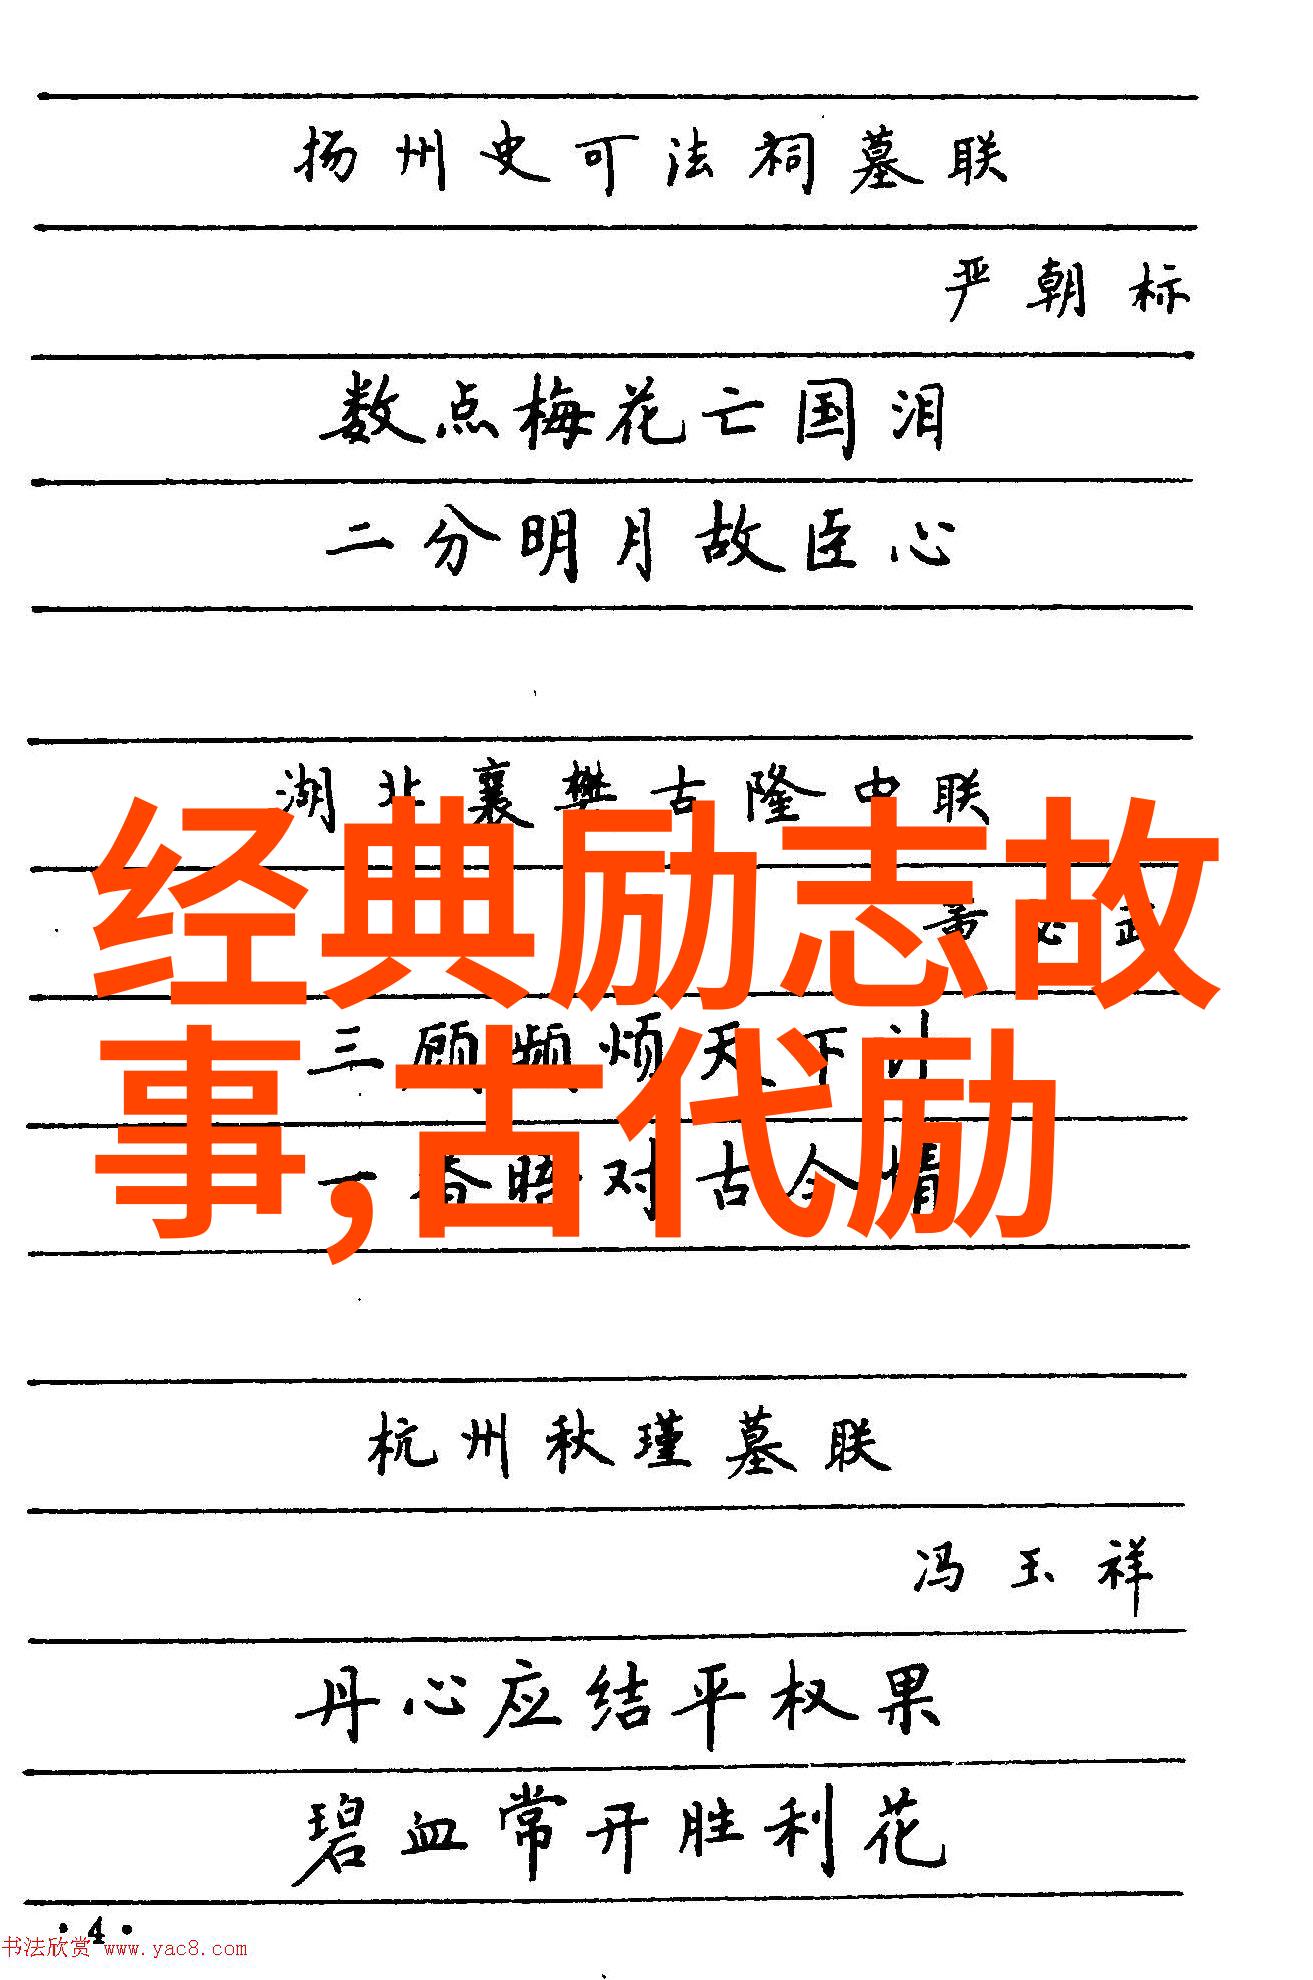 扬州史可法祠墓联
严朝标
数点梅花亡国泪
二分明月故臣心
湖北襄樊古隆中联
经典励志故
三顾频烦天下计
事,古代励
一番晤对古今情
杭州秋瑾墓联
冯玉祥
丹心应结平权果
碧血常开胜利花
·4·
书法欣赏 www.yac8.com